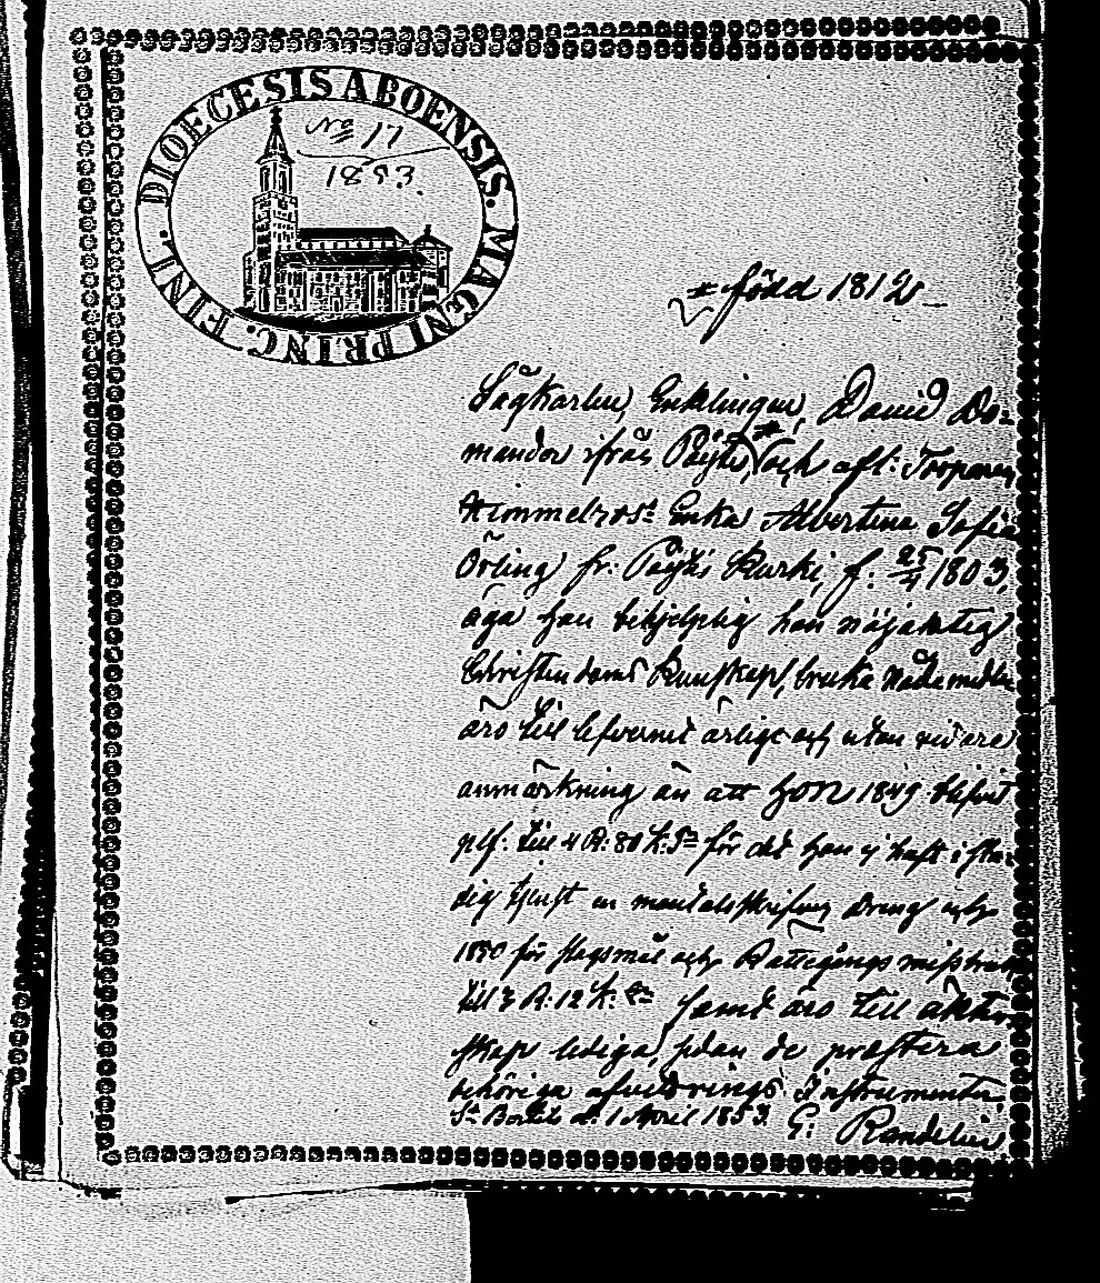 DIOECESIS ABOENSIS. MAGNI PRINC. FINL.
No 17
1853.
* född 1812
Enklingen, David Do-
mander ifrån Pöytis,* och afl: Torparen
Himmelros: Enka Albertina Sofia
Örling fr: Pöytis Kurki, f: 25/4 1803,
äga han behjelplig hon nöjaktig
Christendoms Kunskap, bruka Nådemedlen
äro till lefvernet ärlige och utan vidare
anmärkning än att hon 1849 blifvit
plf: till 4 R: 80 K: Sr för det han ej haft i sta-
dig tjenst en mantalsskrifven Dreng och
1850 för slagsmål och Rättegångs
till 3 R: 12 K: Sr samt äro till äkten-
skap lediga, sedan de prestera
behöriga afvittrings Instrumenter.
St Bertils d. 1 April 1853. G: Randelin